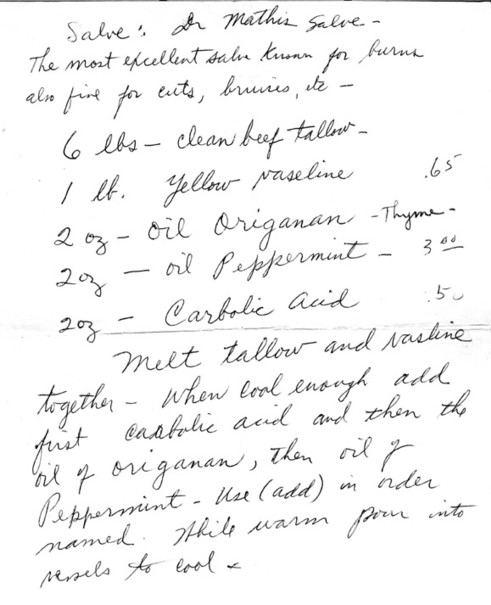 Salve: Dr Mathis Salve -
The most excellent salve known for burns
also fine for cuts, bruises, etc -
6 lbs - clean beef tallow -
1 lb. Yellow vaseline .65
2 oz - oil Origanan - Thyme -
2 oz - oil Peppermint - 3 00
2 oz - Carbolic Acid .50
Melt tallow and vasline
together - When cool enough add
first carbolic acid and then the
oil of origanan, then oil of
Peppermint - Use (add) in order
named. While warm pour into
vessels to cool